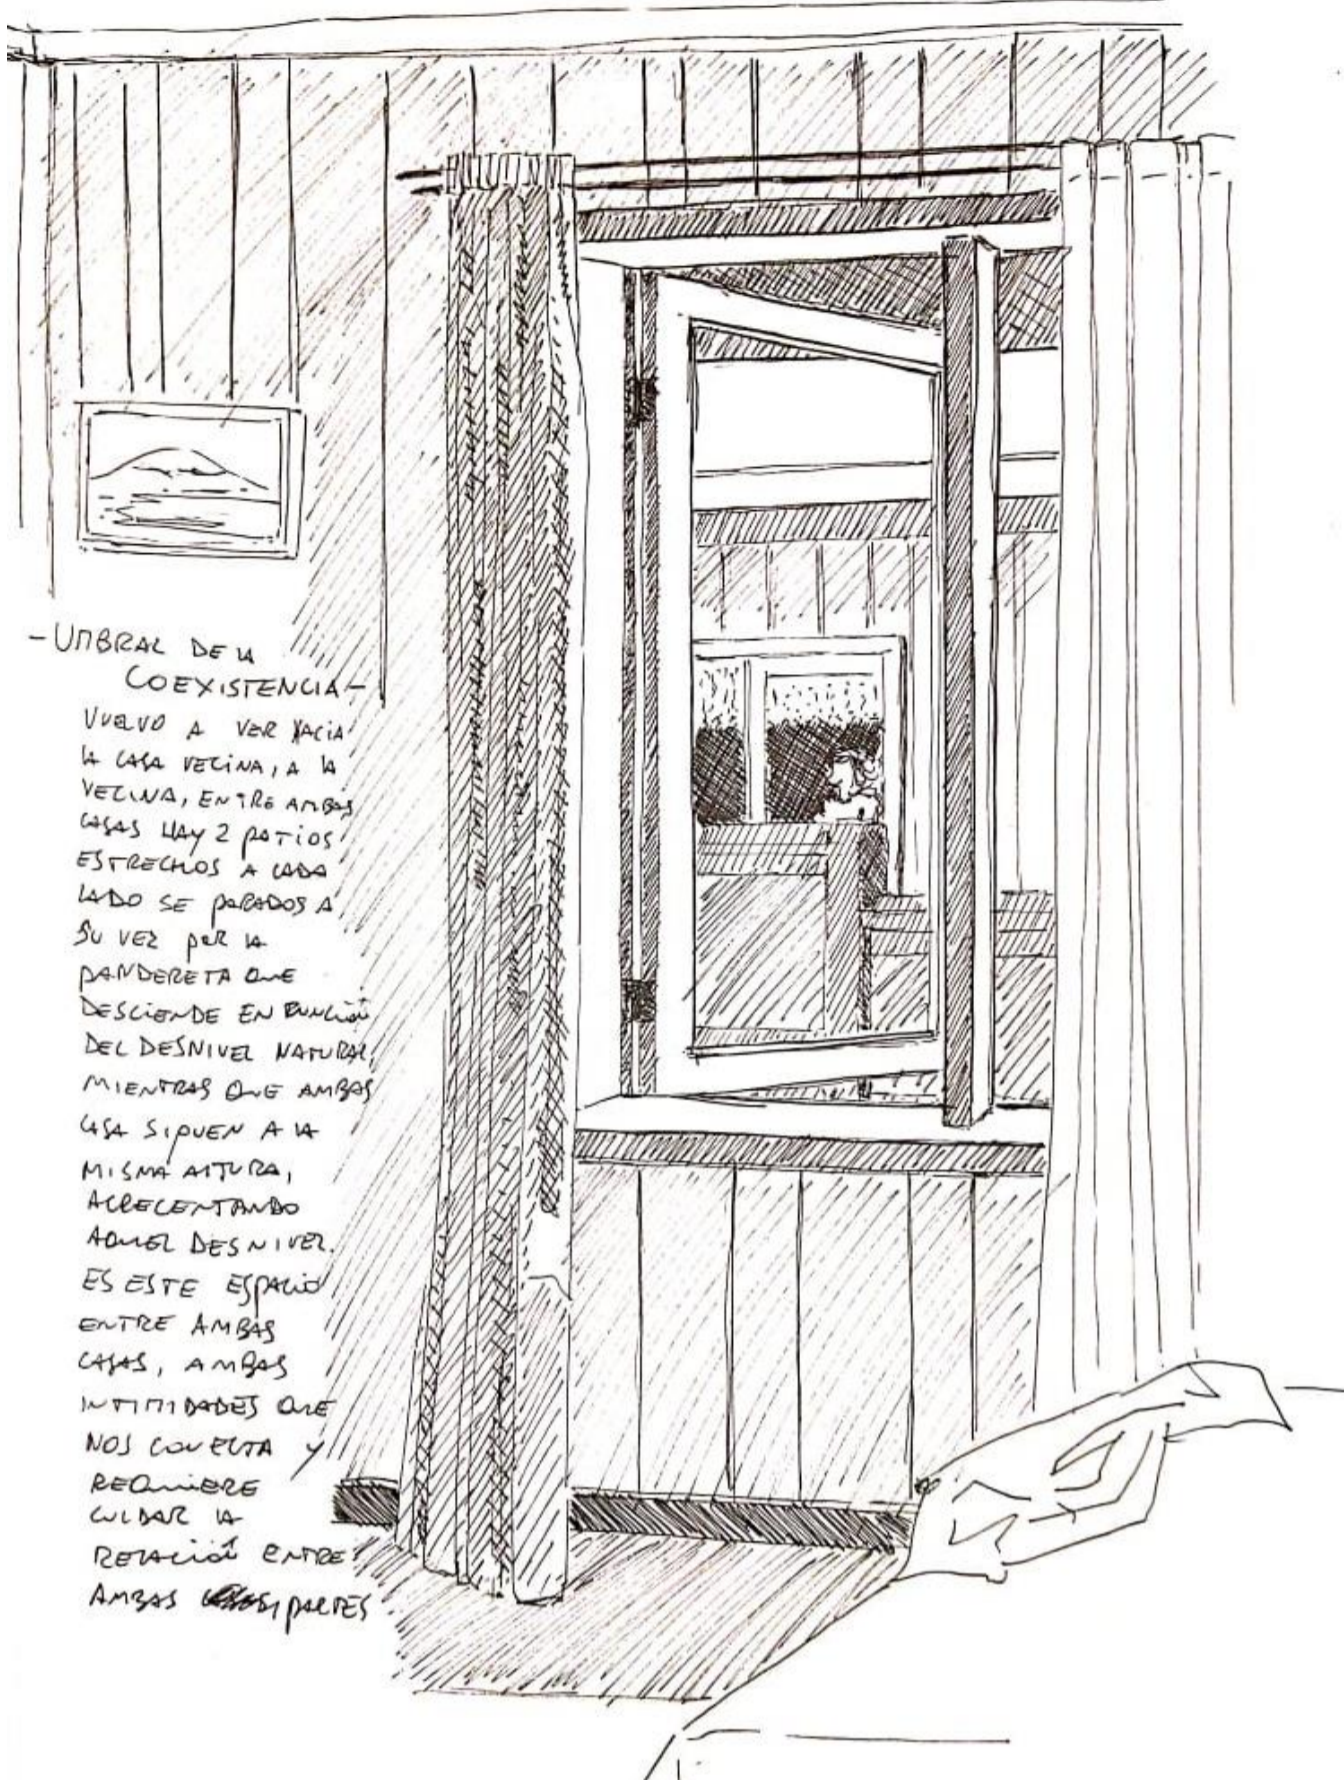 - UMBRAL DE LA
COEXISTENCIA -
VUELVO A VER HACIA
LA CASA VECINA, A LA
VECINA, ENTRE AMBAS
CASAS HAY 2 PATIOS
ESTRECHOS A CADA
LADO SE PARADOS A
SU VEZ POR LA
PANDERETA QUE
DESCIENDE EN FUNCIÓN
DEL DESNIVEL NATURAL,
MIENTRAS QUE AMBAS
CASA SIGUEN A LA
MISMA ALTURA,
ACRECENTANDO
AQUEL DESNIVEL.
ES ESTE ESPACIO
ENTRE AMBAS
CASAS, AMBAS
INTIMIDADES QUE
NOS CONECTA Y
REQUIERE
CUIDAR LA
RELACIÓN ENTRE
AMBAS PARTES